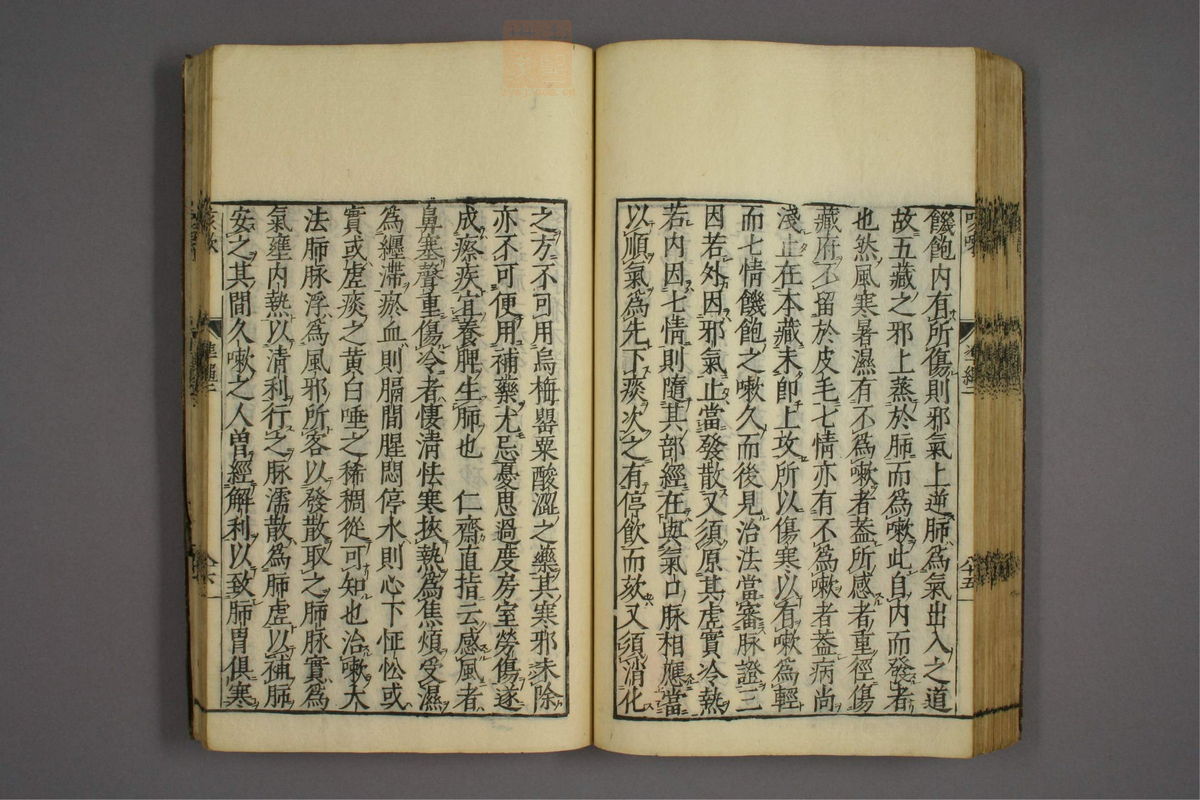 饑飽内有所傷則邪氣上逆肺為氣出入之道
故五藏之邪上蒸於肺而為嗽此自内而發者
也然風寒暑濕有不為嗽者蓋所感者重徑傷
藏府不留於皮毛七情亦有不為嗽者蓋病尚
淺止在本藏未即上攻所以傷寒以有嗽為輕
而七情饑飽之嗽久而後見治法當審脉證三
因若外因邪氣止當發散又須原其虚實冷熱
若内因七情則隨其部經在與氣口脉相應當
以順氣為先下痰次之有停飲而欬又須消化
之方不可用烏梅罌粟酸澀之藥其寒邪未除
亦不可便用補藥尤忌憂思過度房室勞傷遂
成瘵疾宜養脾生肺也　仁齋直指云感風者
鼻塞聲重傷冷者悽清怯寒挾熱為焦煩受濕
為纏滯瘀血則膈間腥悶停水則心下怔忪或
實或虚痰之黄白唾之稀稠從可知也治嗽大
法肺脉浮為風邪所客以發散取之肺脉實為
氣壅内熱以清利行之脉濡散為肺虚以補肺
安之其間久嗽之人曽經解利以致肺胃俱寒